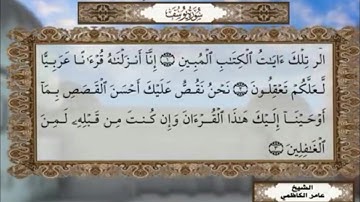 سُورَةُ يُوسُفَ
الٓر تِلْكَ ءَايَٰتُ ٱلْكِتَٰبِ ٱلْمُبِينِ ۝١ إِنَّآ أَنزَلْنَٰهُ قُرْءَٰنًا عَرَبِيًّا
لَّعَلَّكُمْ تَعْقِلُونَ ۝٢ نَحْنُ نَقُصُّ عَلَيْكَ أَحْسَنَ ٱلْقَصَصِ بِمَآ
أَوْحَيْنَآ إِلَيْكَ هَٰذَا ٱلْقُرْءَانَ وَإِن كُنتَ مِن قَبْلِهِۦ لَمِنَ
ٱلْغَٰفِلِينَ ۝٣
الشيخ
عامر الكاظمي